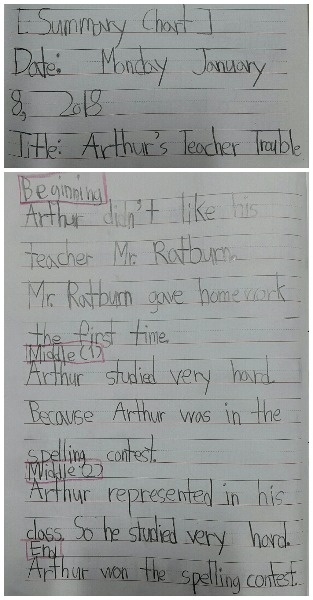 [Summary Chart]
Date: Monday January
8, 2018
Title: Arthur's Teacher Trouble
Beginning
Arthur didn't like his
teacher Mr. Ratburn.
Mr. Ratburn gave homework
the first time.
Middle (1)
Arthur studied very hard.
Because Arthur was in the
spelling contest.
Middle (2)
Arthur represented in his
class. So he studied very hard.
End
Arthur won the spelling contest.